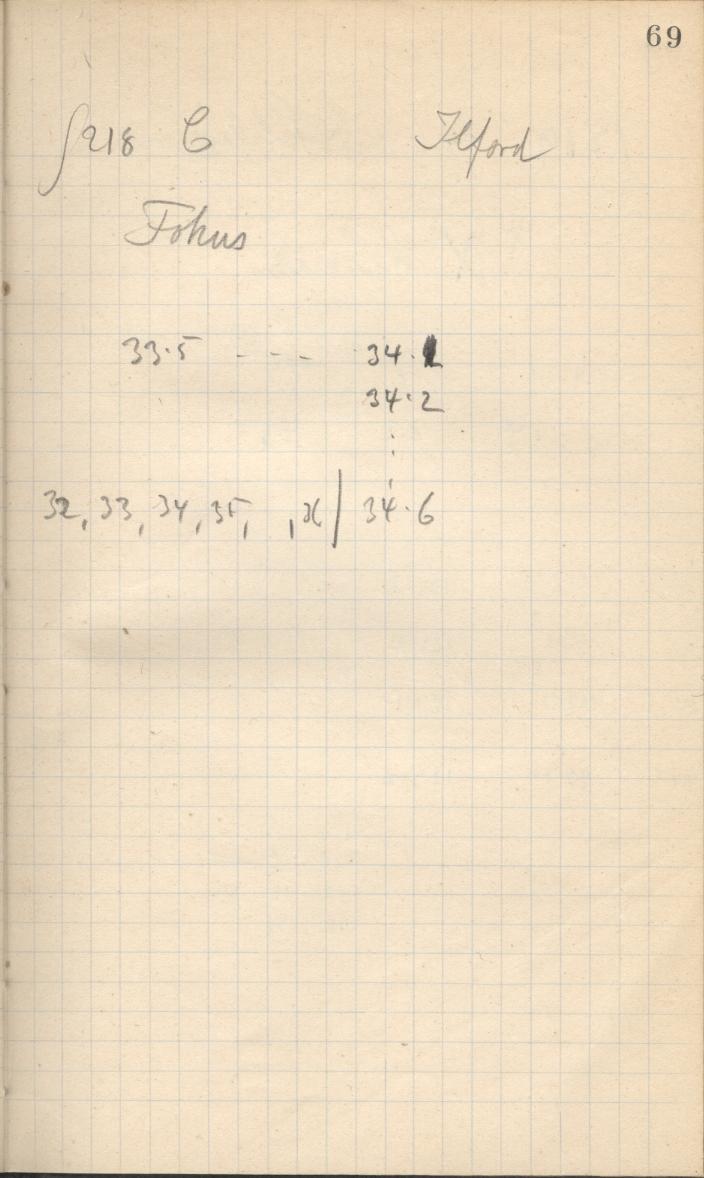 69
∫218 C Ilford
Fokus
33.5 - - - 34.1
34.2
⋮
32, 33, 34, 35, , x | 34.6